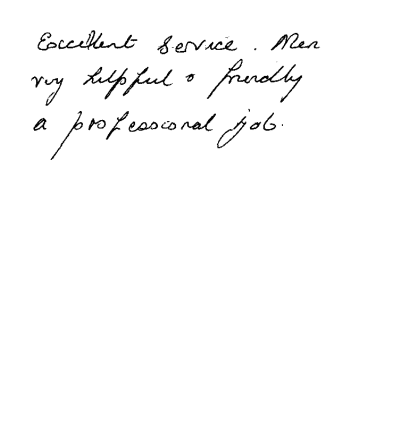 Excellent Service. Men
very helpful & friendly
a professional job.